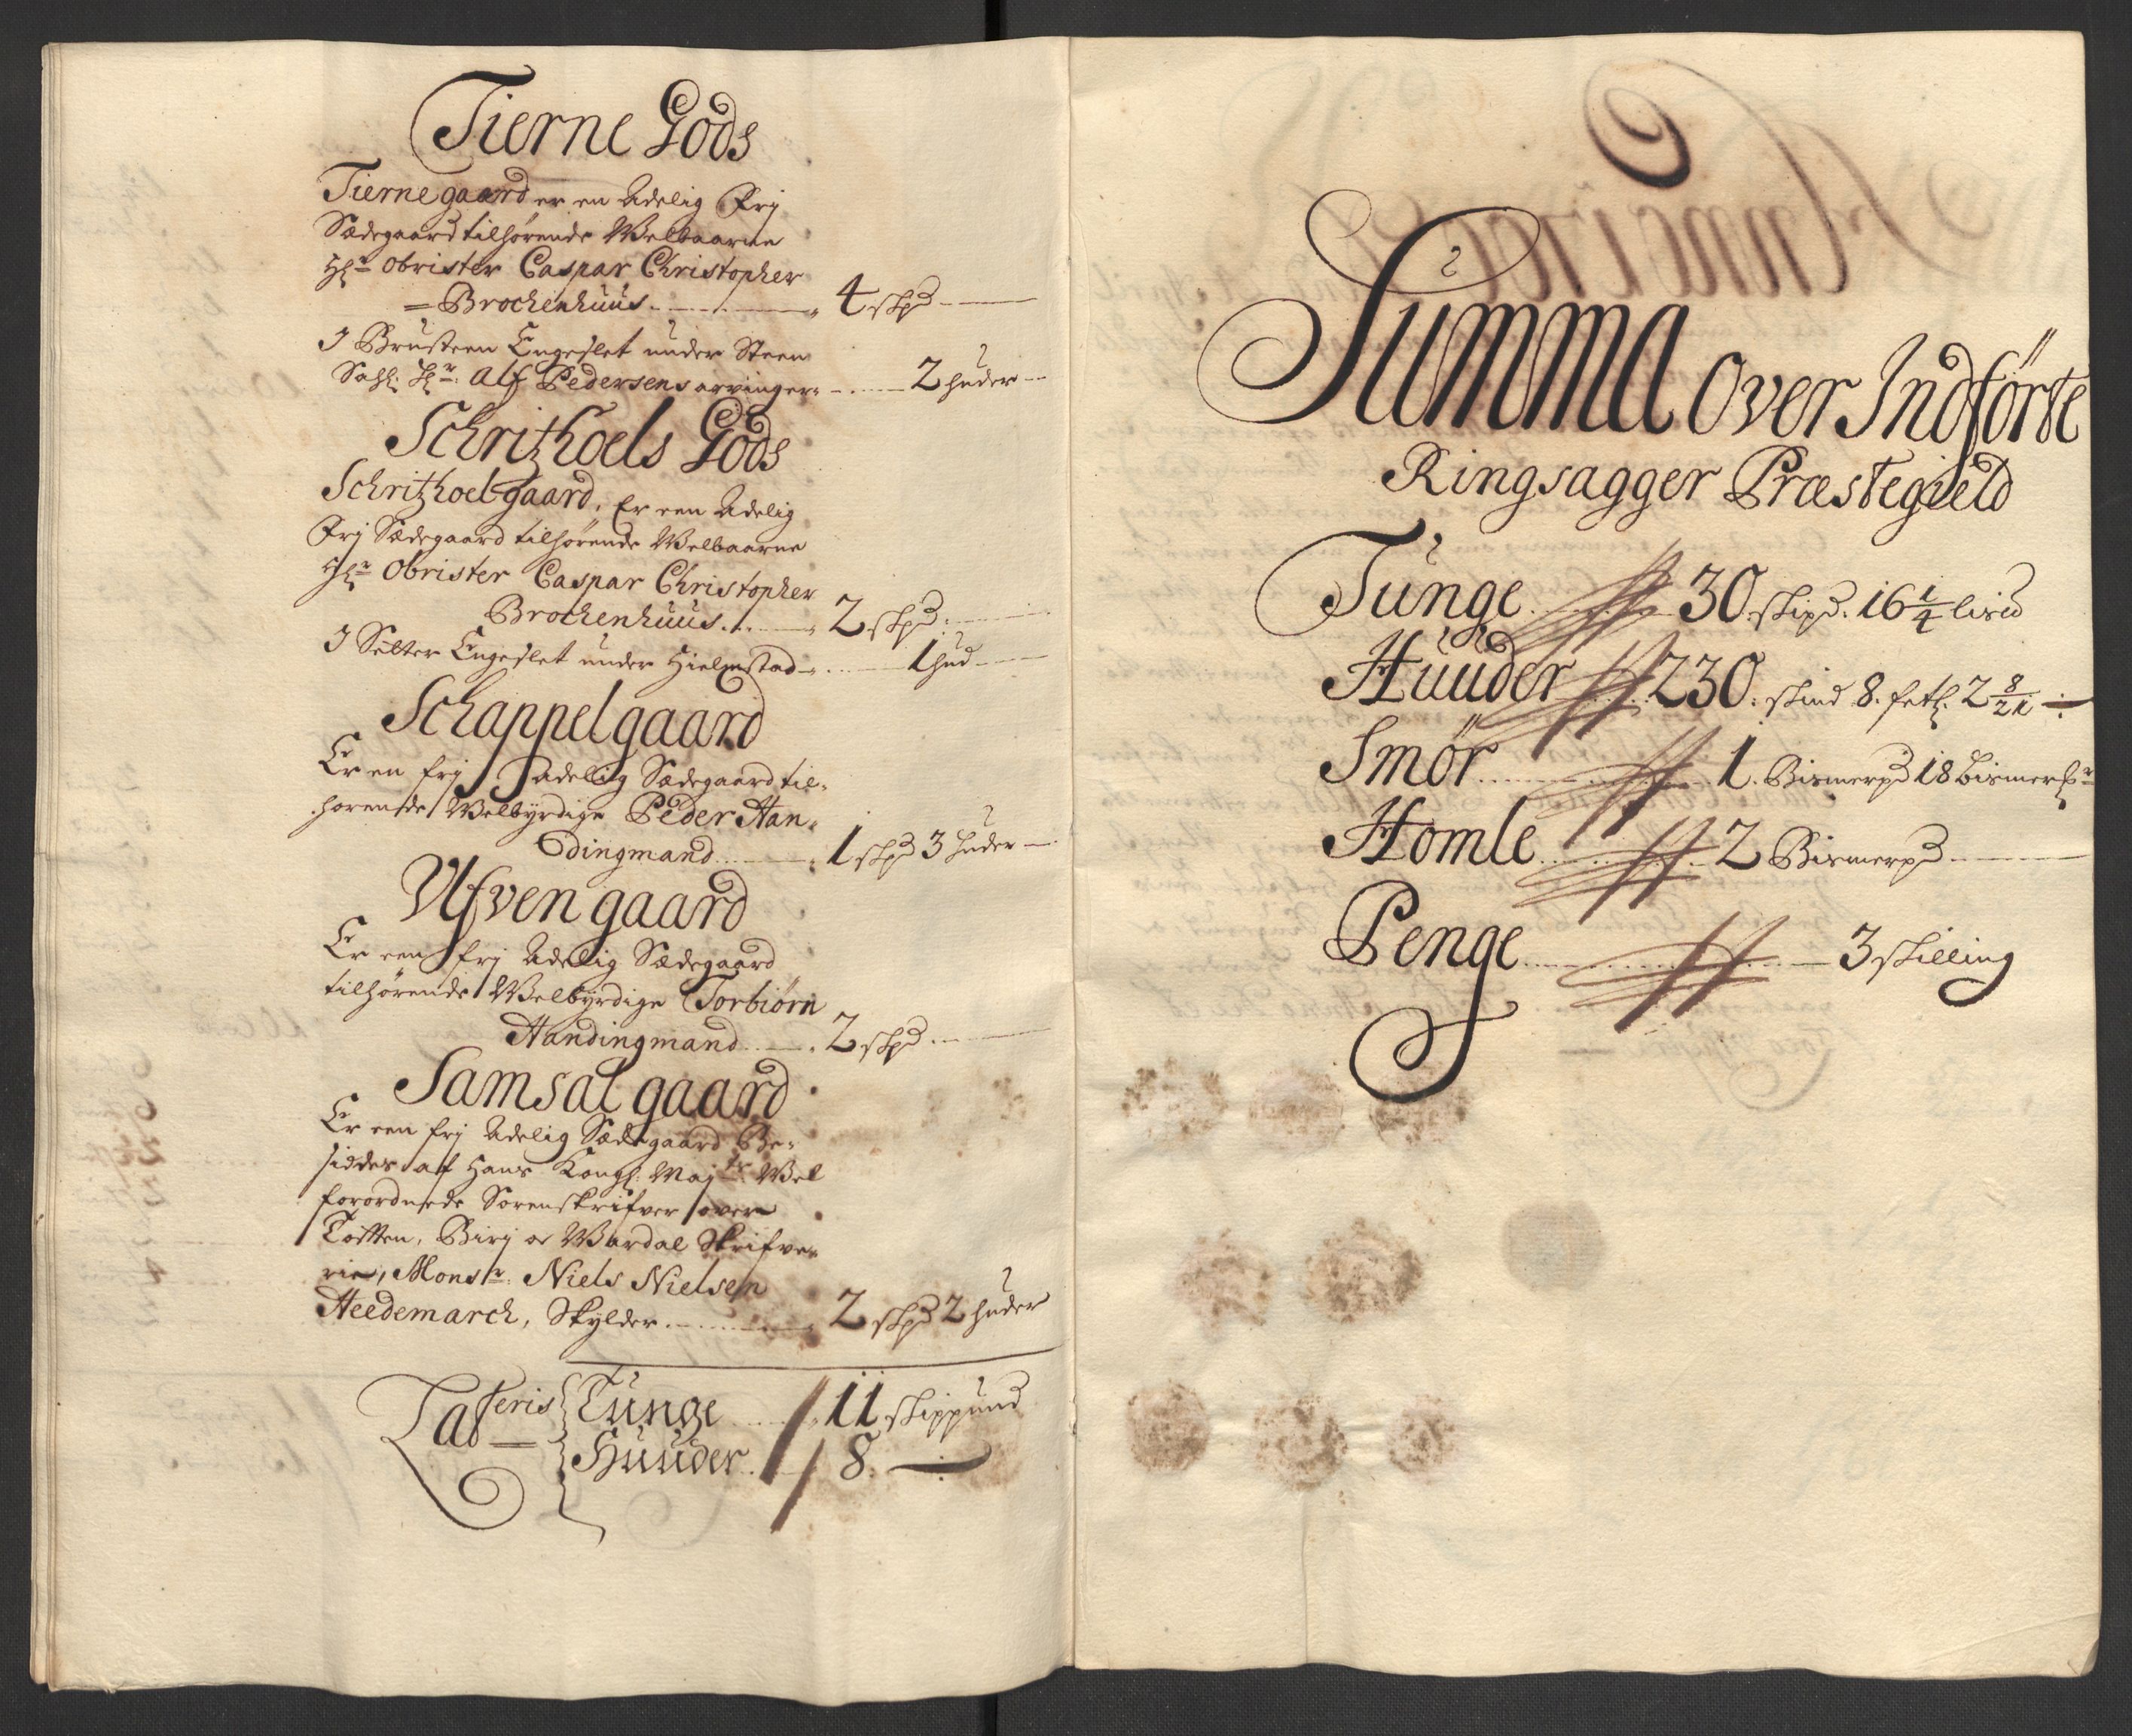 Tierne Gods
Tierne gaard er en Adelig Frj
Sædegaard tilhørende Welbaarne
Hr Obrister Caspar Christopher
= Brochenhuus 4 skpd
I Brusteen Engeslet under Steen
Sahl: Hr: Alf Pedersens arvinger 2 huder
Schritzhoels Gods
Schritzhoel gaard, Er een Adelig
Frj Sædegaard tilhørende Welbaarne
Hr Obrister Caspar Christopher
Brochenhuus 2 skpd
I Selter Engeslet under Hielmstad 1 hud
Schappel gaard
Er en frj Adelig Sædegaard til-
hørende Welbyrdige Peder Han-
dingmand 1 skpd 3 huder
Ulfven gaard
Er een frj Adelig Sædegaard
tilhørende Welbyrdige Torbiørn
Handingmand 2 skpd
Samsal gaard
Er een frj Adelig Sædegaard Be-
siddes af Hans Kongl: Maj:ts Wel
forordnede Sorenskrifver over
Tofften, Birj og Wardal Skrifve-
rie, Monsr: Niels Nielsen
Heedemarch, Skylder 2 skpd 2 huder
Lateris Tunge 11 skippund
Huuder 8
Summa over Indførte
Ringsagger Præstegield
Tunge 30 skipd. 16 1/4 lispd
Huuder 230. skind 8. fetl: 2 8/21
Smør 1. Bismerpd 18 bismermr
Homle 2 Bismerpd
Penge 3 skilling